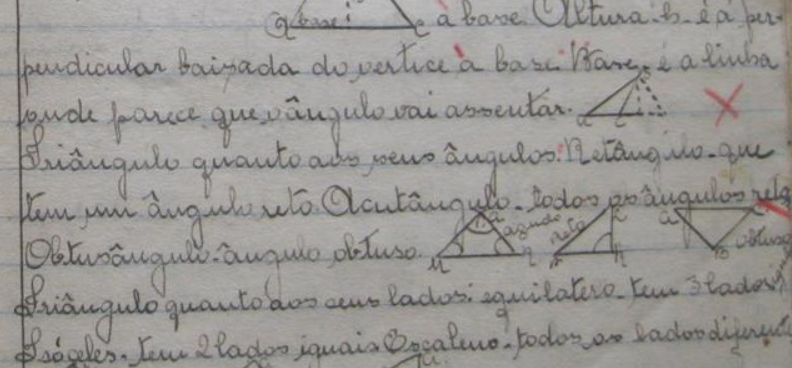 a base: c à base. Altura-h-é a per-
pendicular baixada do vertice à base. Base, é a linha
onde parece que o ângulo vai assentar.
Triângulo quanto aos seus ângulos: Retângulo-que
tem um ângulo reto. Acutângulo-todos os ângulos reto
Obtusângulo-ângulo obtuso. agudo reto obtuso
Triângulo quanto aos seus lados: equilátero-tem 3 lados
Isóceles-tem 2 lados iguais Escaleno-todos os lados diferent